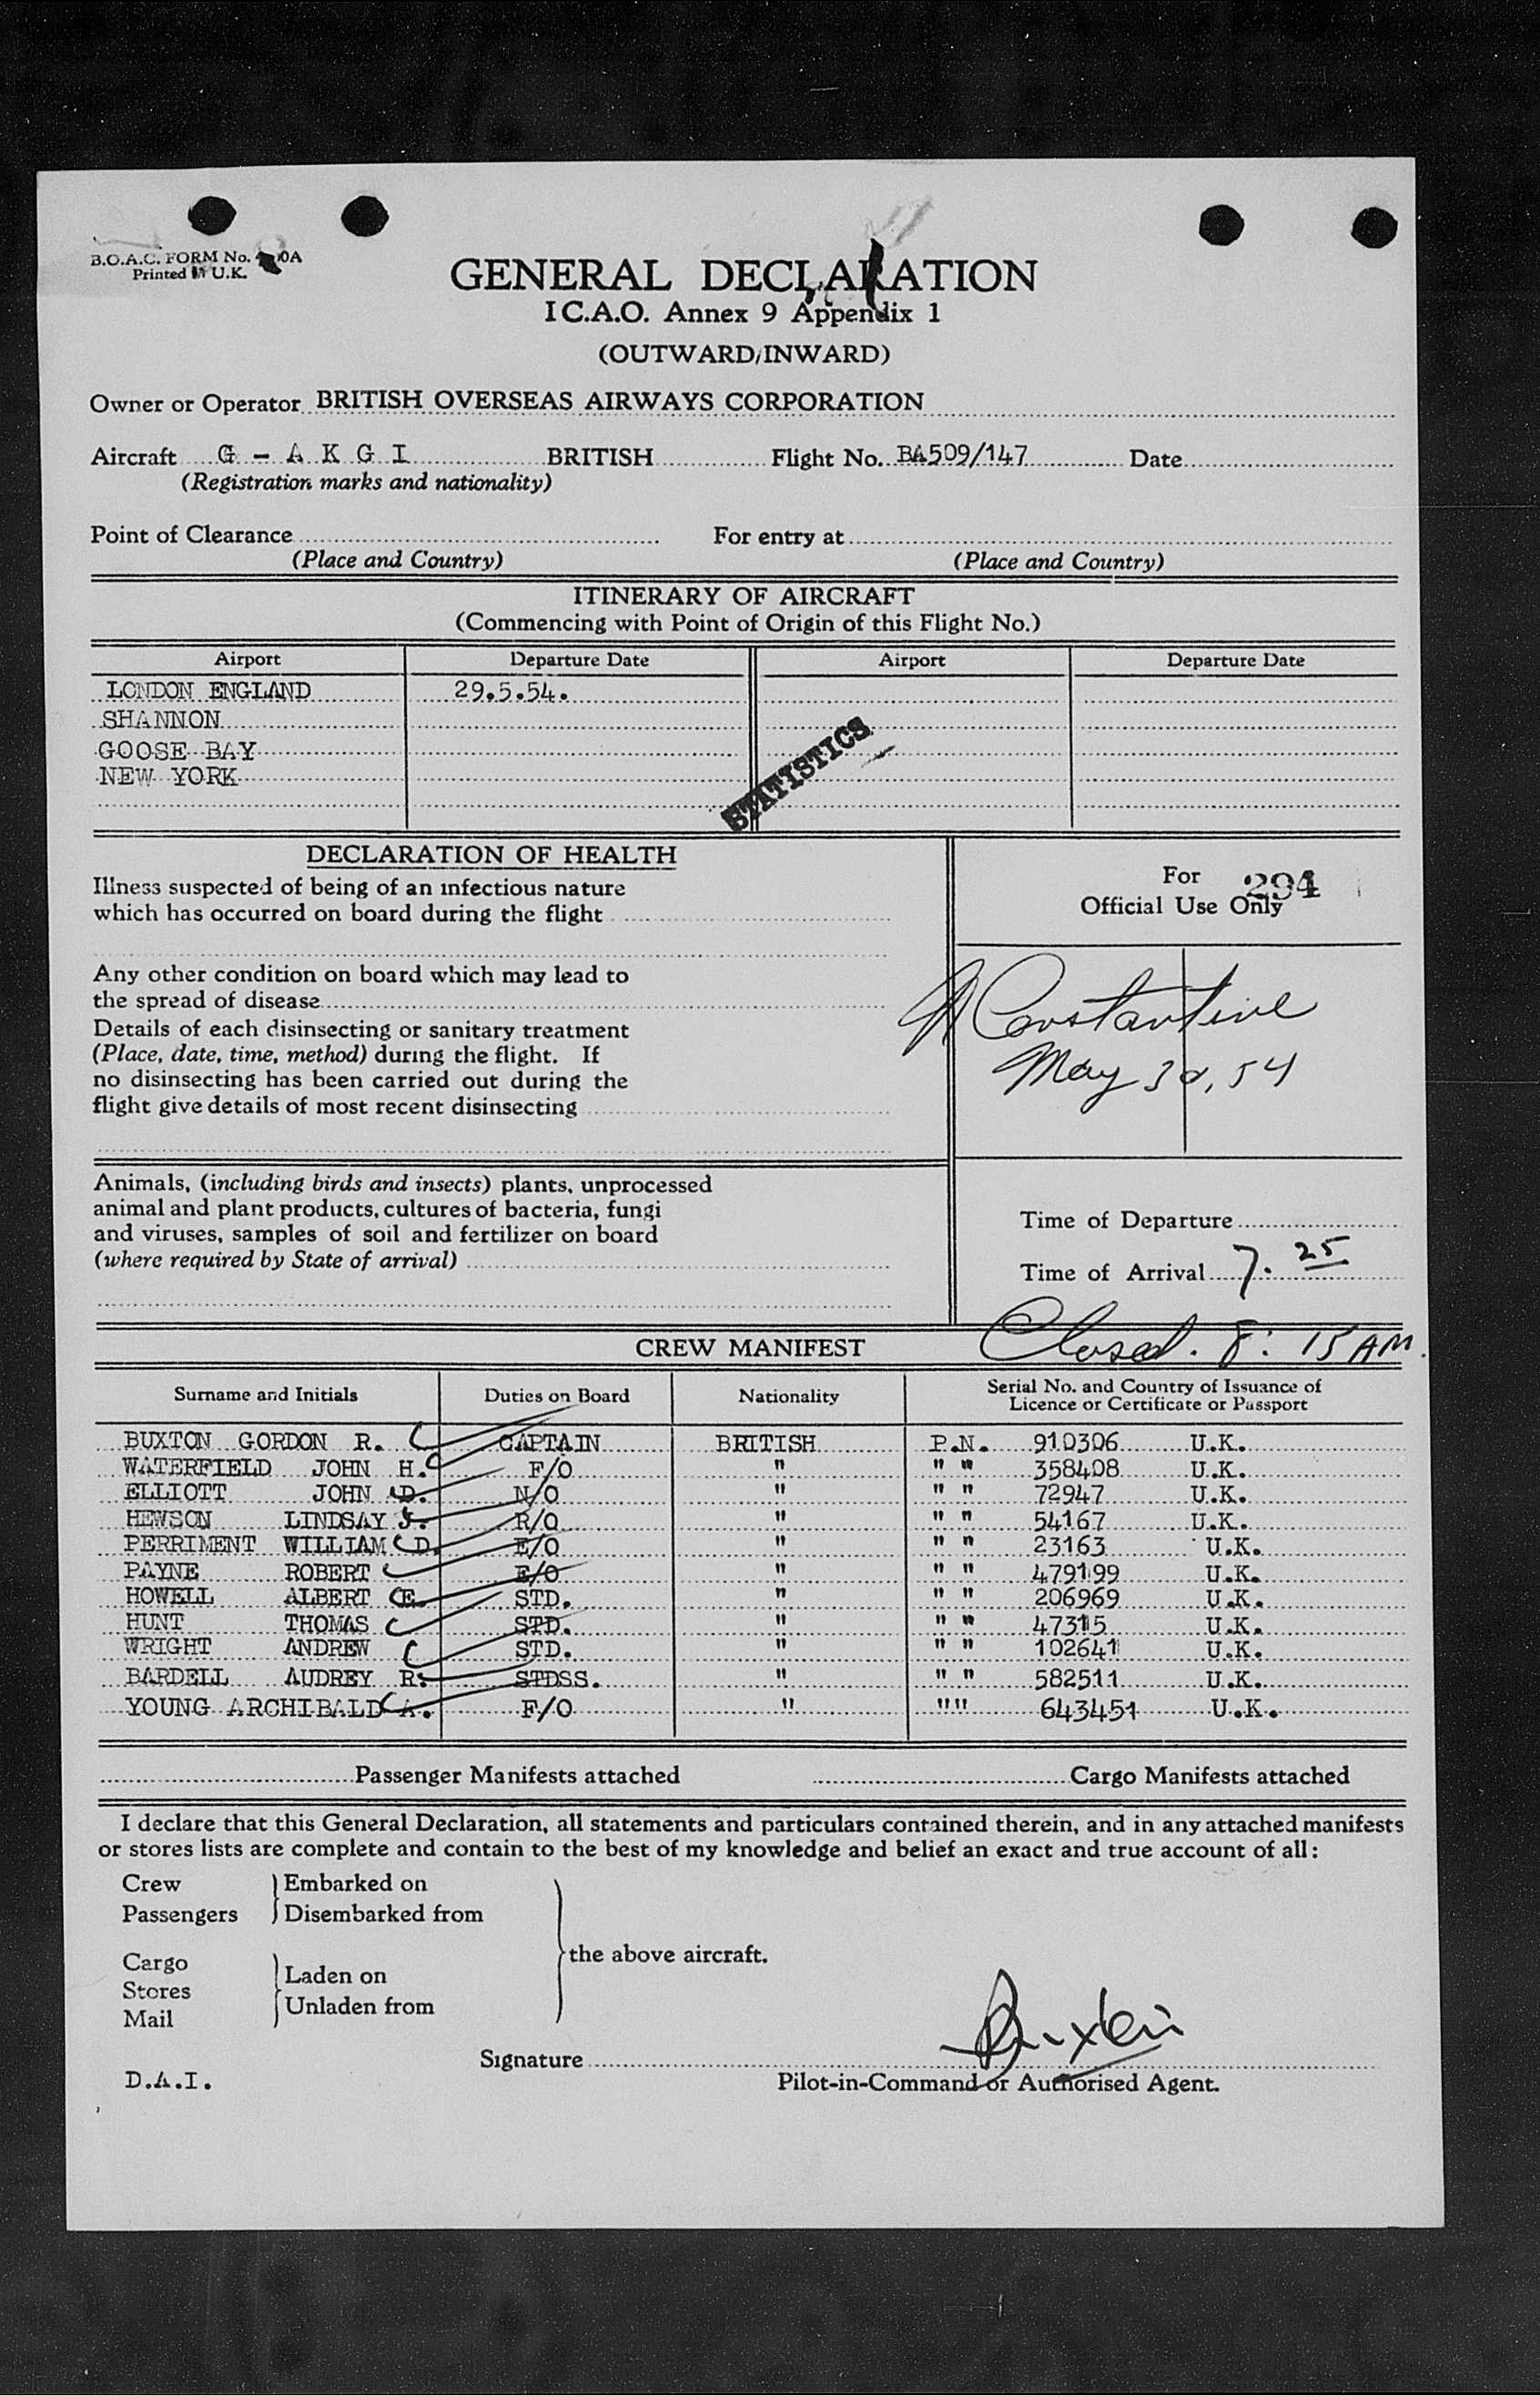 B.O.A.C. FORM No.
Printed in U.K.
GENERAL DECLARATION
I C.A.O. Annex 9 Appendix 1
(OUTWARD/INWARD)
Owner or Operator BRITISH OVERSEAS AIRWAYS CORPORATION
Aircraft G - A K G I BRITISH Flight No. BA509/147 Date
(Registration marks and nationality)
Point of Clearance For entry at
(Place and Country) (Place and Country)
ITINERARY OF AIRCRAFT
(Commencing with Point of Origin of this Flight No.)
Airport Departure Date Airport Departure Date
LONDON ENGLAND 29.5.54.
SHANNON
GOOSE BAY
NEW YORK
STATISTICS
DECLARATION OF HEALTH
Illness suspected of being of an infectious nature
which has occurred on board during the flight
Any other condition on board which may lead to
the spread of disease
Details of each disinsecting or sanitary treatment
(Place, date, time, method) during the flight. If
no disinsecting has been carried out during the
flight give details of most recent disinsecting
Animals, (including birds and insects) plants, unprocessed
animal and plant products, cultures of bacteria, fungi
and viruses, samples of soil and fertilizer on board
(where required by State of arrival)
For 294
Official Use Only
Constantine
May 30, 54
Time of Departure
Time of Arrival 7. 25
Closed. 8: 15 AM.
CREW MANIFEST
Surname and Initials Duties on Board Nationality Serial No. and Country of Issuance of
Licence or Certificate or Passport
BUXTON GORDON R. CAPTAIN BRITISH P.N. 910306 U.K.
WATERFIELD JOHN H. F/O " " " 358408 U.K.
ELLIOTT JOHN D. N/O " " " 72947 U.K.
HEWSON LINDSAY J. R/O " " " 54167 U.K.
PERRIMENT WILLIAM D. E/O " " " 23163 U.K.
PAYNE ROBERT E/O " " " 479199 U.K.
HOWELL ALBERT E. STD. " " " 206969 U.K.
HUNT THOMAS STD. " " " 47315 U.K.
WRIGHT ANDREW STD. " " " 102641 U.K.
BARDELL AUDREY R. STDSS. " " " 582511 U.K.
YOUNG ARCHIBALD A. F/O " "" 643451 U.K.
Passenger Manifests attached Cargo Manifests attached
I declare that this General Declaration, all statements and particulars contained therein, and in any attached manifests
or stores lists are complete and contain to the best of my knowledge and belief an exact and true account of all:
Crew Embarked on
Passengers Disembarked from
the above aircraft.
Cargo Laden on
Stores
Mail Unladen from
Signature Buxton
Pilot-in-Command or Authorised Agent.
D.A.I.